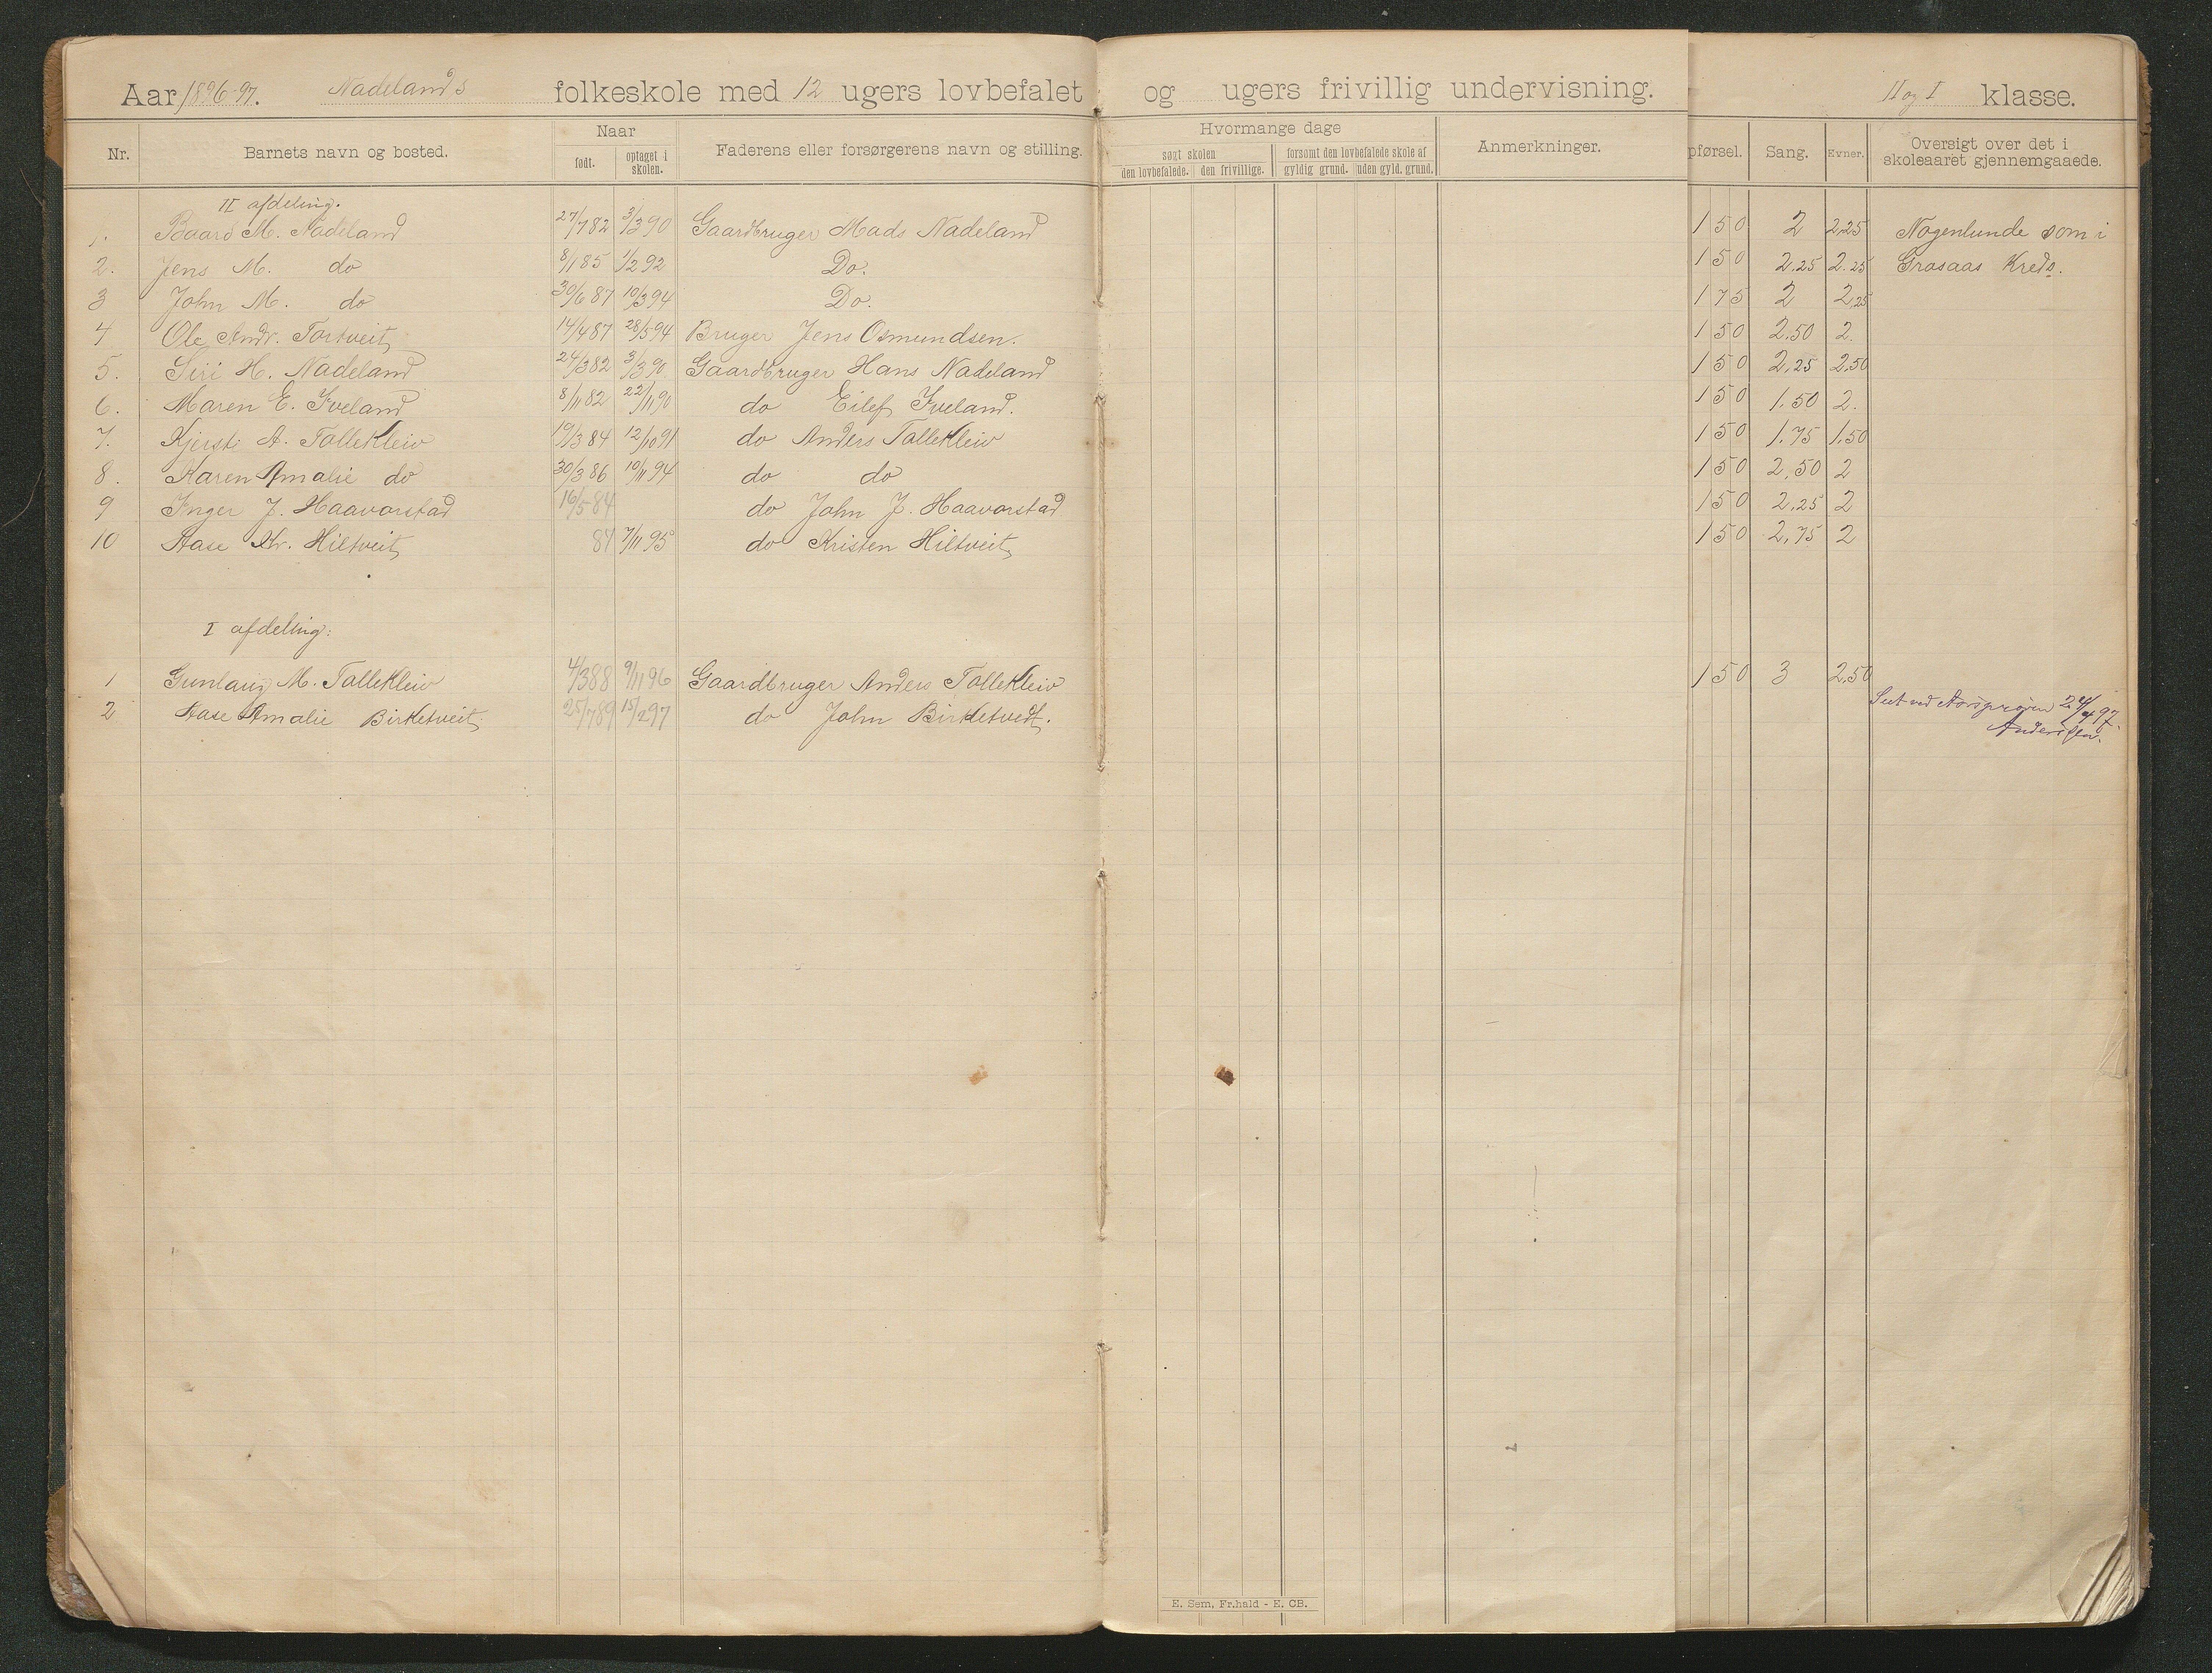 Aar 1896-97. Nadelands folkeskole med 12 ugers lovbefalet og ugers frivillig undervisning. II og I klasse.
Nr. Barnets navn og bosted. Naar født. optaget i skolen. Faderens eller forsørgerens navn og stilling. Hvormange dage søgt skolen den lovbefalede. den frivillige. forsømt den lovbefalede skole af gyldig grund. uden gyld. grund. Anmerkninger. pførsel. Sang. Evner. Oversigt over det i skoleaaret gjennemgaaede.
II afdeling.
1. Baard M. Nadeland 27/7 82 3/3 90 Gaardbruger Mads Nadeland 1 50 2 2,25 Nogenlunde som i
2. Jens M. do 8/1 85 1/2 92 Do. 1 50 2,25 2.25 Grosaas Kreds.
3 John M. do 30/6 87 10/3 94 Do. 1 75 2 2,25
4 Ole Andr. Tortveit 14/4 87 28/5 94 Bruger Jens Osmundsen. 1 50 2,50 2.
5. Siri H. Nadeland 24/3 82 3/3 90 Gaardbruger Hans Nadeland 1 50 2,25 2,50
6. Maren E. Iveland 8/11 82 22/11 90 do Eilef Iveland. 1 50 1.50 2.
7. Kjersti A. Tallekleiv 19/3 84 12/10 91 do Anders Tallekleiv 1 50 1,75 1,50
8. Karen Amalie do 30/3 86 10/11 94 do do 1 50 2,50 2
9 Inger J. Haavorstad 16/5 84 do John J. Haavorstad 1 50 2,25 2
10 Aase Kr. Hiltveit 84 7/11 95 do Kristen Hiltveit 1 50 2,75 2
I afdeling:
1 Gunlaug M. Tallekleiv 4/3 88 9/11 96 Gaardbruger Anders Tallekleiv 1 50 3 2,50
2 Aase Amalie Birketveit 25/7 89 15/2 97 do John Birketvedt.
Seet ved Aarsprøven 24/4 97.
E. Sem, Fr.hald - E. CB.